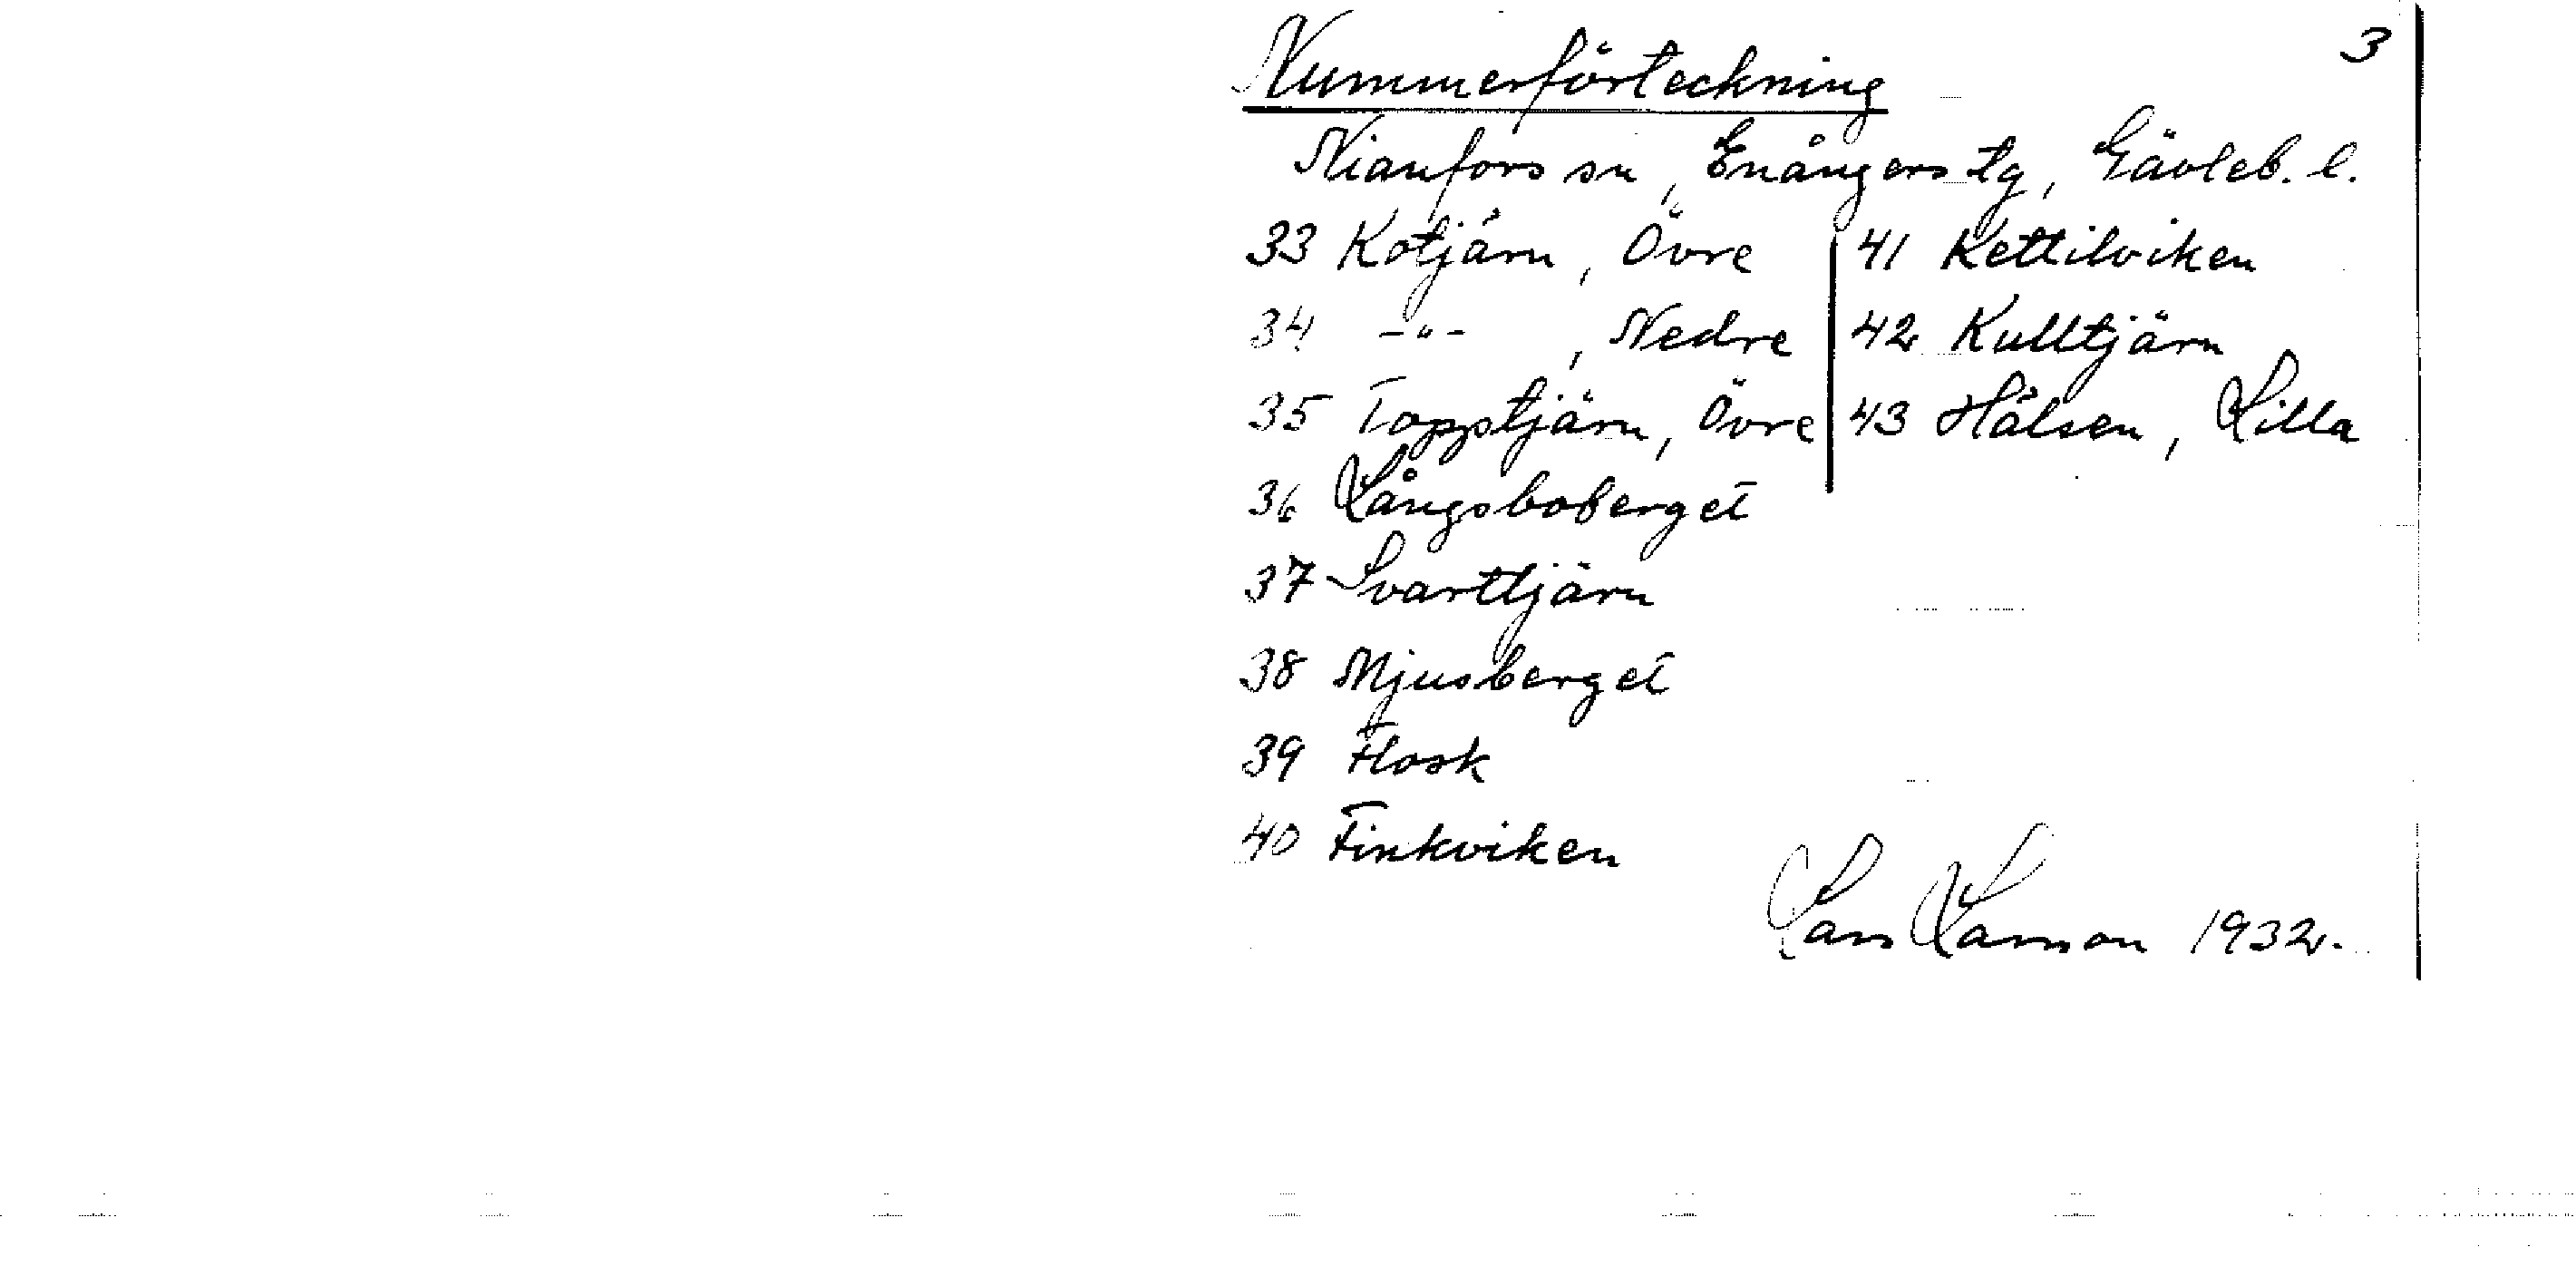 3
Nummerförteckning
Nianfors sn, Enångers tg, Gävleb. l.
33 Kotjärn, Övre
34 -"- , Nedre
35 Topptjärn, Övre
36 Långsboberget
37 Svarttjärn
38 Mjusberget
39 Flosk
40 Finkviken
41 Kettilviken
42 Kulltjärn
43 Hålsen, Lilla
Lars Larsson 1932.